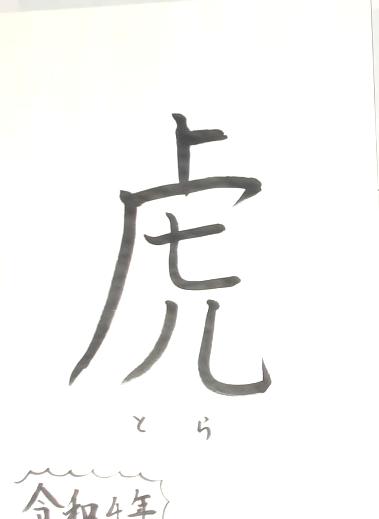 虎
とら
令和4年